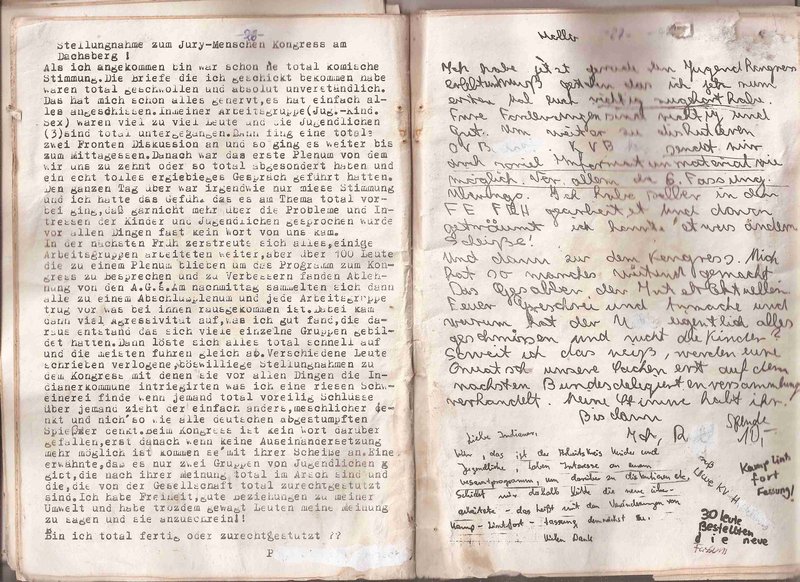 -26-
Stellungnahme zum Jury-Menschen Kongress am
Dachsberg !
Als ich angekommen bin war schon ne total komische
Stimmung.Die Briefe die ich geschickt bekommen habe
waren total geschwollen und absolut unverständlich.
Das hat mich schon alles genervt,es hat einfach al-
les angeschissen.Inmeiner Arbeitsgruppe(Jug.-Kind.
Sex) waren viel zu viel Leute und die Jugendlichen
(3)sind total untergegangen.Dann fing eine totale
zwei Fronten Diskussion an und so ging es weiter bis
zum Mittagessen.Danach war das erste Plenum von dem
wir uns zu nehnt oder so total abgesondert haten und
ein echt tolles ergiebieges Gespräch geführt hatten.
Den ganzen Tag über war irgendwie nur miese Stimmung
und ich hatte das Gefühl das es am Thema total vor-
bei ging,daß garnicht mehr über die Probleme und In-
tressen der Kinder und Jugendlichen gesprochen wurde
vor allen Dingen fast kein Wort von uns kam.
In der nächsten Früh zerstreute sich alles,einige
Arbeitsgruppen arbeiteten weiter,aber über 100 Leute
die zu einem Plenum blieben um das Programm zum Kon-
gress zu besprechen und zu Verbessern fanden Ableh-
nung von den A.G.E.Am nachmittag sammelten sich dann
alle zu einem Abschlußplenum und jede Arbeitsgruppe
trug vor was bei innen rausgekommen ist.Dabei kam
dann viel Agressivität auf,was ich gut fand,die da-
raus entstand das sich viele einzelne Gruppen gebil-
det hatten.Dann löste sich alles total schnell auf
und die meisten fuhren gleich ab.Verschiedene Leute
schrieben verlogene,böswillige Stellungnahme zu
dem Kongress mit denen sie vor allen Dingen die In-
dianerkommune intriegirten was ich eine riesen Schw-
einerei finde wenn jemand total voreilig Schlüsse
über jemand zieht der einfach anders,meschlicher de-
nkt und nich'so wie alle deutschen abgestumpften
Spießer denkt.Beim Kongress ist kein Wort darüber
gefallen,erst danach wenn keine Auseinandersetzung
mehr möglich ist kommen se'mit ihrer Scheiße an.Eine
erwähnte,das es nur zwei Gruppen von Jugendlichen g
gibt,die nach ihrer meinung total im Arsch sind und
die,die von der Gesellschaft total zurechtgestutzt
sind.Ich habe Freiheit,gute beziehungen zu meiner
Umwelt und habe trozdem gewagt Leuten meine Meinung
zu sagen und sie anzuschrein!!
Bin ich total fertig oder zurechtgestutzt ??
Hallo
Ich habe jetzt gerade den Jugend Kongress
das ich jetz zum
ersten Mal euch richtig zugehört habe.
Eure Forderungen sind richtig und
gut. Um weiter zu diskutieren
KVB sendet mir
doch soviel Informationmaterial wie
möglich. Vor allem die 6. Fassung.
Ich habe selber in den
gearbeitet und davon
geträumt ich könnte etwas ändern
Scheiße!
Und dann zu dem Kongress. Mich
hat so manches wütend gemacht
Das Gesabber der Intellektuellen.
Euer Geschrei und Anmache und
warum hat der eigentlich alles
geschmissen und nicht die Kinder?
Soweit ich das weiß, werden eure
unsere Sachen erst auf dem
nächsten Bundesdelegierten versammlung
verhandelt. Meine Stimme habt ihr.
Bis dann
Spende
10,-
Liebe Indianer,
Wir, das ist der Arbeitskreis Kinder und
Jugendliche, haben Interesse an eurem
um darüber zu diskutieren etc.
Schickt mir deshalb bitte die neue über-
arbeitete - das heißt mit den Veränderungen von
Kamp-Lintfort - Fassung demnächst zu.
Vielen Dank
Kamp Lint
fort
Fassung!
30 leute
Bestellten
die neue